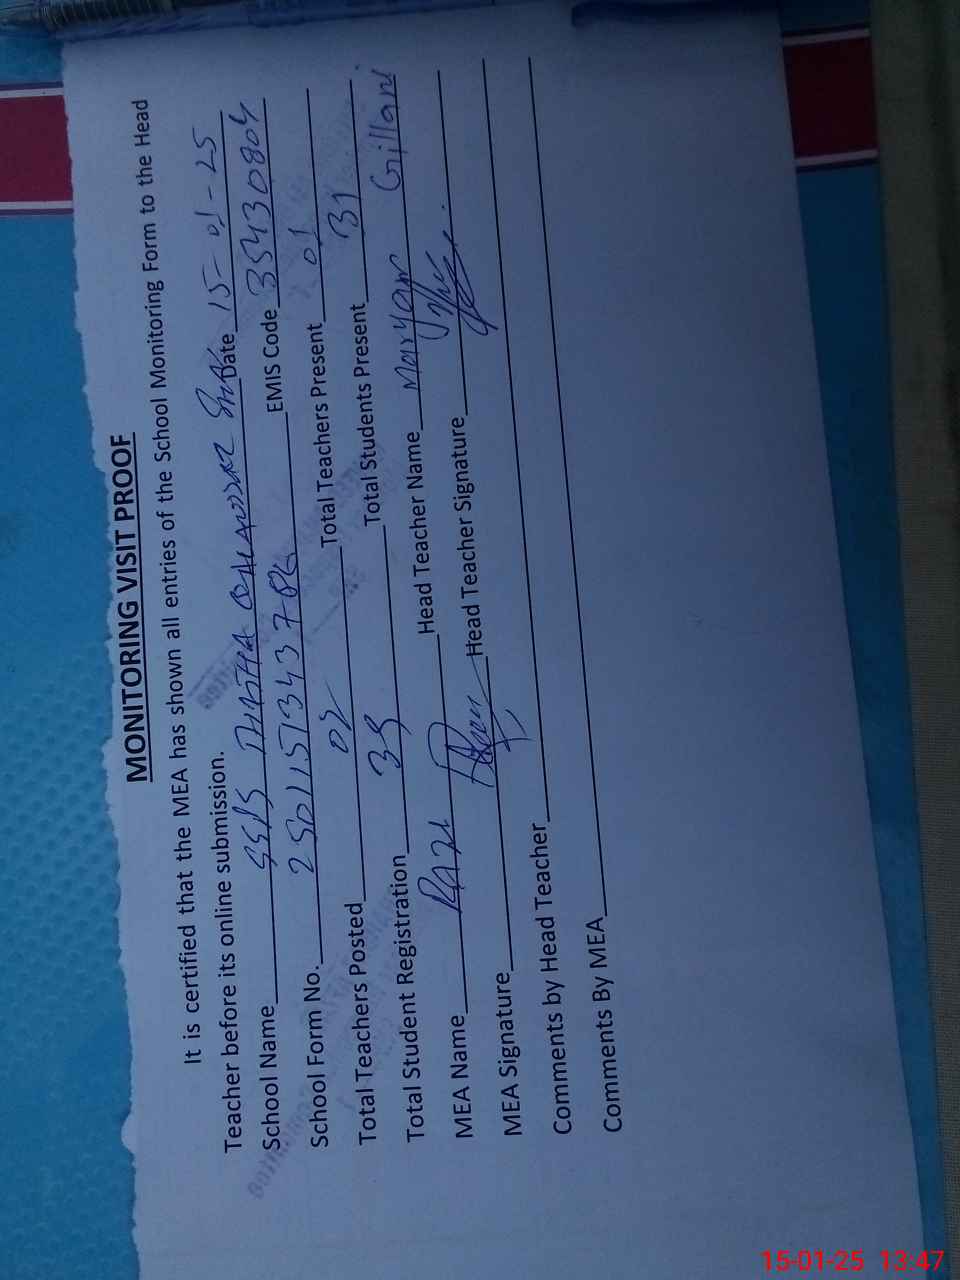 MONITORING VISIT PROOF
It is certified that the MEA has shown all entries of the School Monitoring Form to the Head
Teacher before its online submission.
School Name GGPS Date 15-01-25
School Form No. EMIS Code 35430804
Total Teachers Posted 02 Total Teachers Present 01
Total Student Registration 38 Total Students Present 31
MEA Name RAZI Head Teacher Name Maryam Gillani
MEA Signature Head Teacher Signature
Comments by Head Teacher
Comments By MEA
15-01-25 13:47